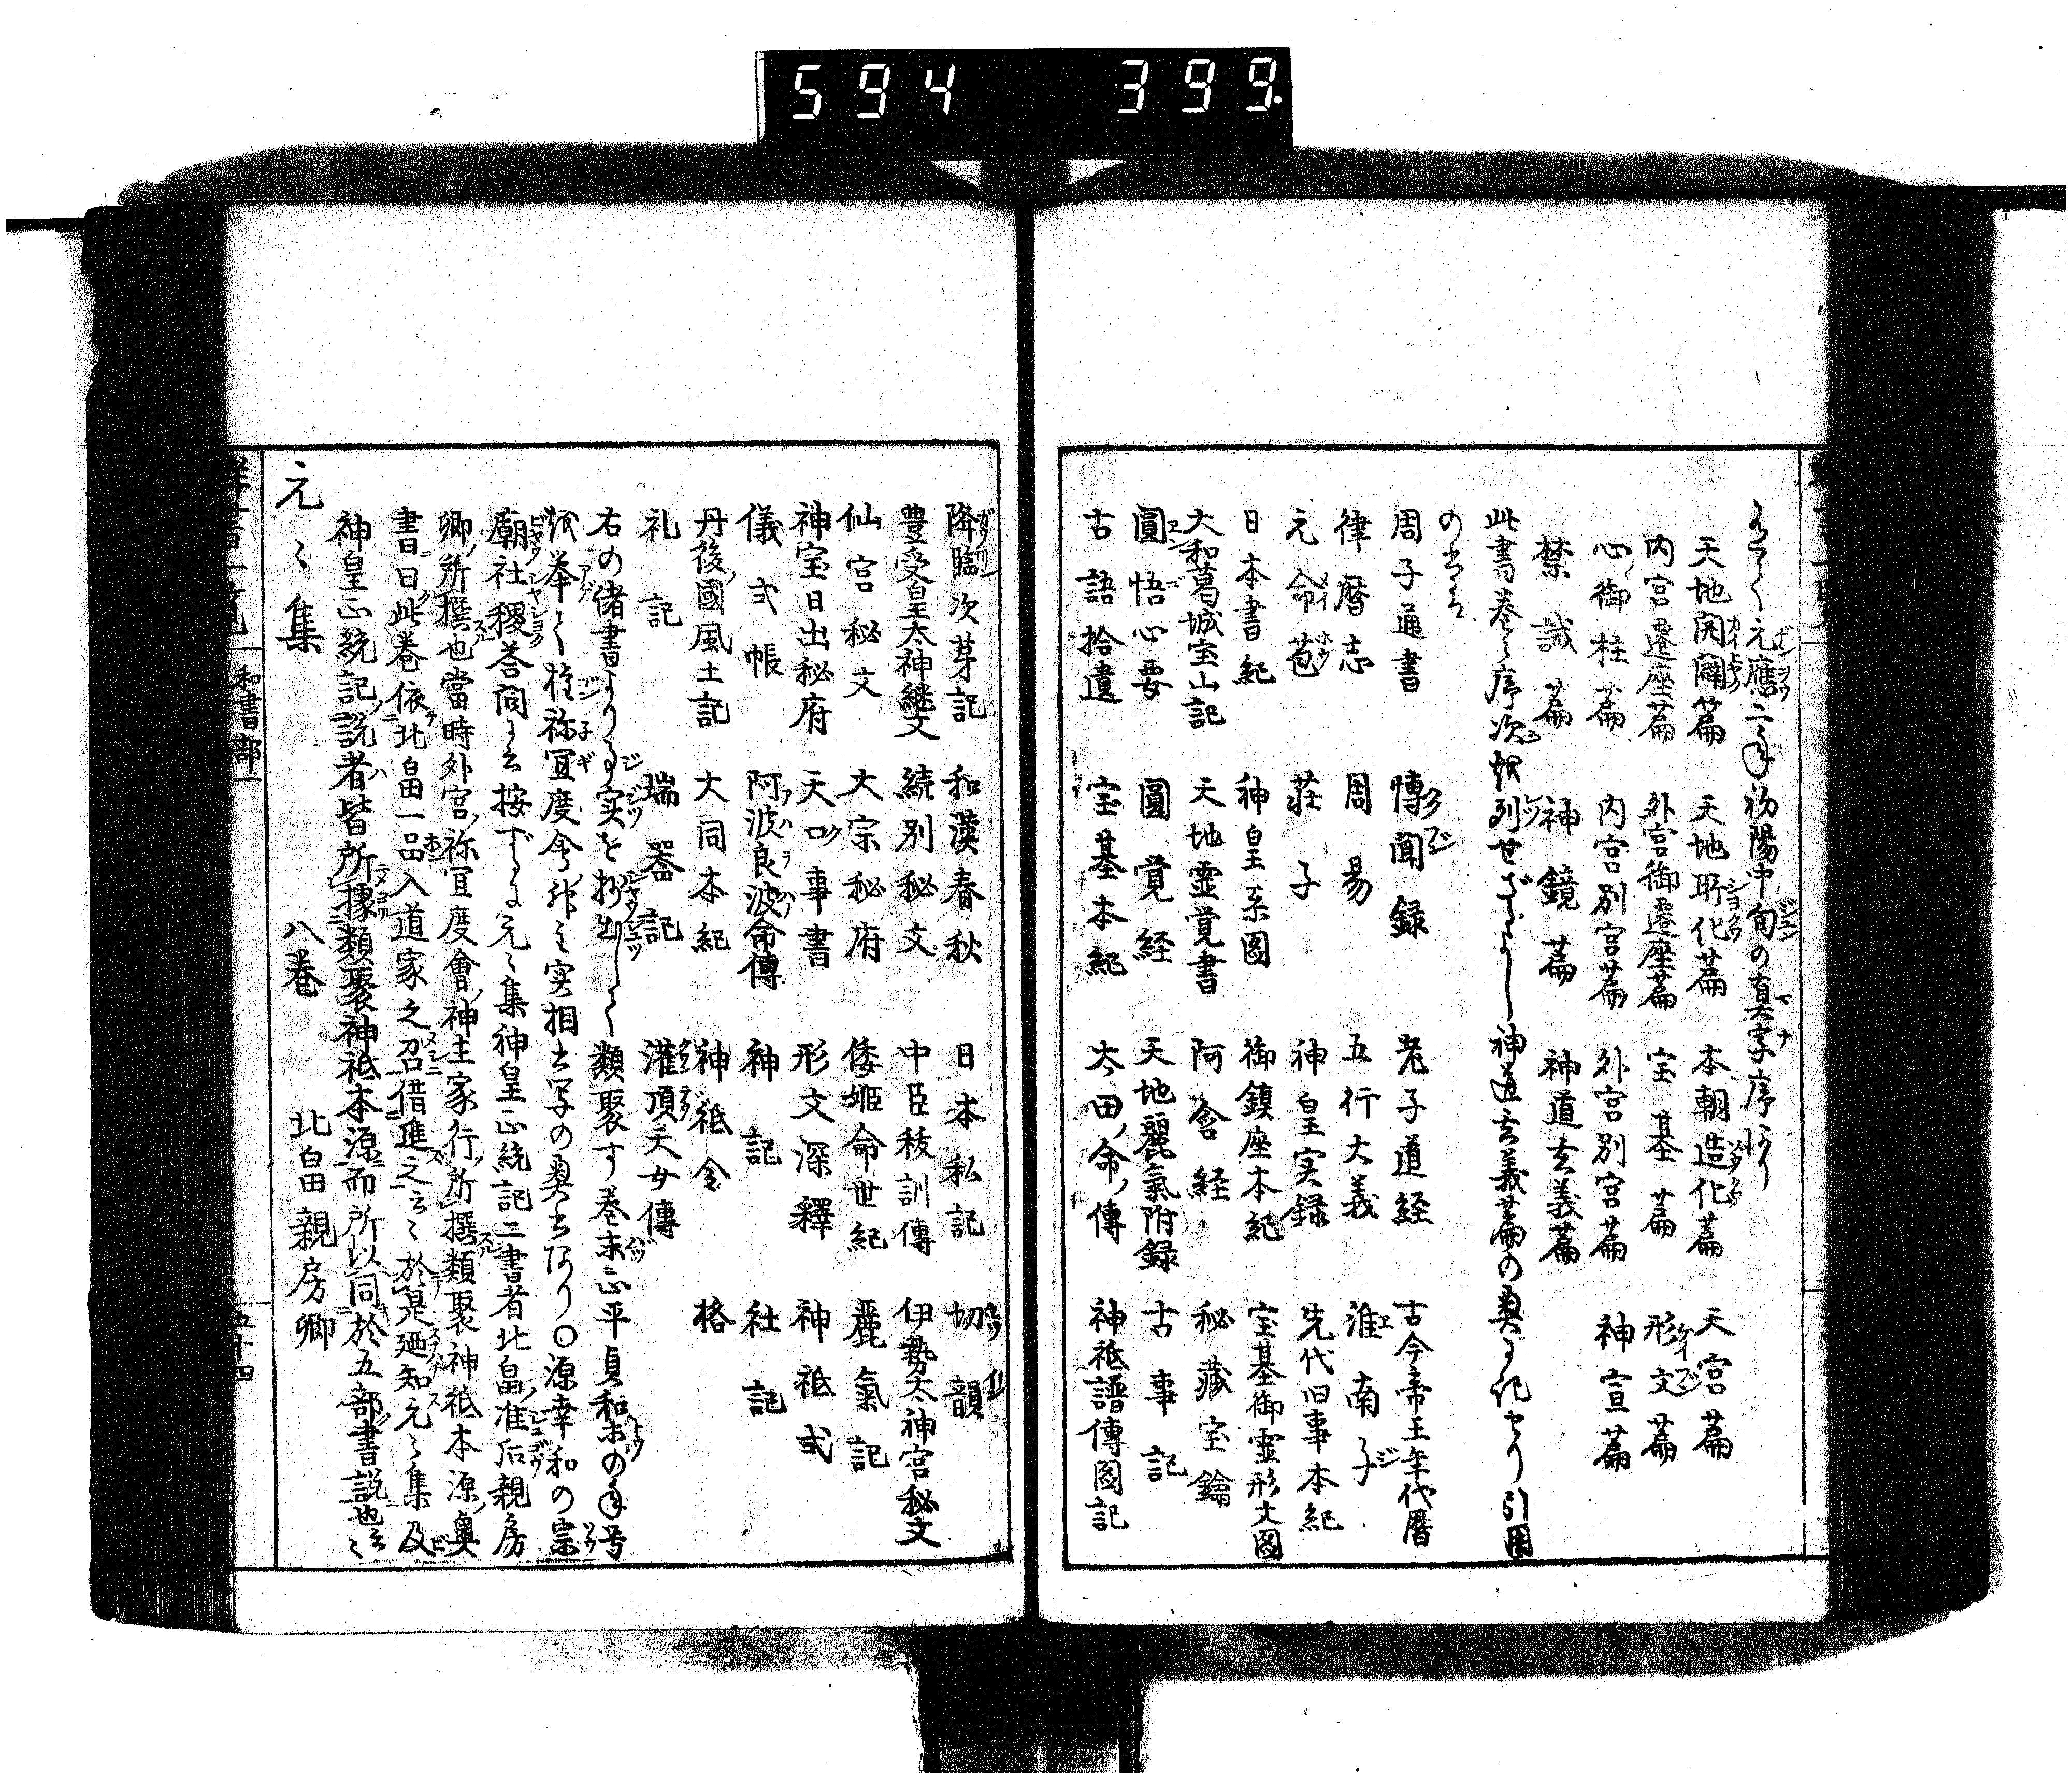 594 399.
元應二年初陽中旬の真字序あり
天地開闢篇 天地所化篇 本朝造化篇 天宮篇
内宮遷座篇 外宮御遷座篇 宝基篇 形文篇
心御柱篇 内宮別宮篇 外宮別宮篇 神宣篇
禁誡篇 神鏡篇 神道玄義篇
此書巻〻序次 列せざるよし神道玄義篇の奥に記せり引圖
の書は
周子通書 愽聞録 老子道経 古今帝王年代暦
律暦志 周易 五行大義 淮南子
元命苞 荘子 神皇実録 先代旧事本紀
日本書紀 神皇系圖 御鎮座本紀 宝基御霊形文圖
大和葛城宝山記 天地霊覚書 阿含経 秘蔵宝鑰
圓悟心要 圓覚経 天地麗氣附録 古事記
古語拾遺 宝基本紀 太田ノ命ノ傳 神祇譜傳圖記
降臨次苐記 和漢春秋 日本私記 切韻
豊受皇太神継文 続別秘文 中臣祓訓傳 伊勢太神宮秘文
仙宮秘文 大宗秘府 倭姫命世紀 麗氣記
神宝日出秘府 天口事書 形文深釋 神祇式
儀式帳 阿波良波命傳 神記 社記
丹後國風土記 大同本紀 神祇令 格
礼記 瑞器記 灌頂天女傳
右の諸書より事実を抄出して類聚す巻末正平貞和ホの年号
を挙て 祢宜度会 実相 写の奥書あり○源幸和の宗
廟社稷荅問に云按ずるに元〻集神皇正統記二書者北畠准后親房
卿ノ所撰也當時外宮ノ祢宜度會ノ神主家行ノ所撰類聚神祇本源ノ奥
書曰曰此巻依北畠一品入道家之召借進之云〻於是廼知元〻集及
神皇正統記ノ説者皆所據類聚神祇本源而所以同於五部書説也云〻
元〻集 八巻 北畠親房卿
群書一覧 和書部 五十四